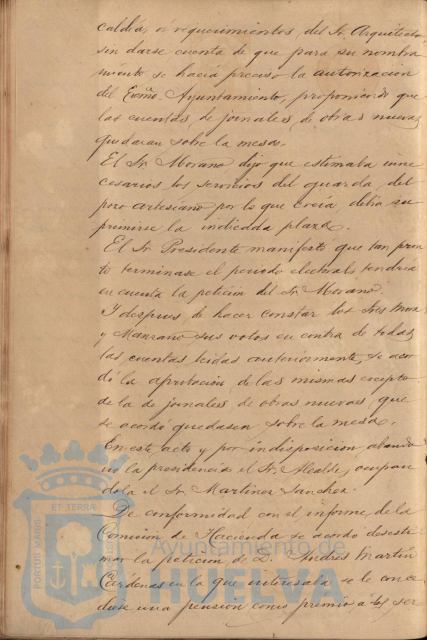 caldía, ó requerimientos, del Sr. Arquitecto
sin darse cuenta de que para su nombra
miento se hacia preciso la autorizacion
del Excmo. Ayuntamiento, proponiendo que
las cuentas, de jornales, de obras nuevas
quedaran sobre la mesa.
El Sr. Morano dijo que estimaba inne
cesarios los servicios del guarda, del
pozo artesiano por lo que creía debia su
primirse la indicada plaza.
El Sr. Presidente manifestó que tan pron
to terminase el periodo electoral tendria
en cuenta la peticion del Sr. Morano.
Y despues de hacer constar los Sres. Mora
y Manzano sus votos en contra de todas
las cuentas leidas anteriormente, se acor
dó la aprobacion de las mismas excepto
de la de jornales de obras nuevas, que
se acordó quedasen sobre la mesa.
En este acto y por indisposicion, abando
nó la presidencia el Sr. Alcalde, ocupan
dola el Sr. Martinez Sanchez.
De conformidad con el informe de la
Comision de Hacienda se acordó desesti
mar la peticion de D. Andrés Martin
Cárdenas en la que interesaba se le conce
diese una pension como premio á los ser
PORTUS MARIS
ET TERRA
Ayuntamiento de
HUELVA